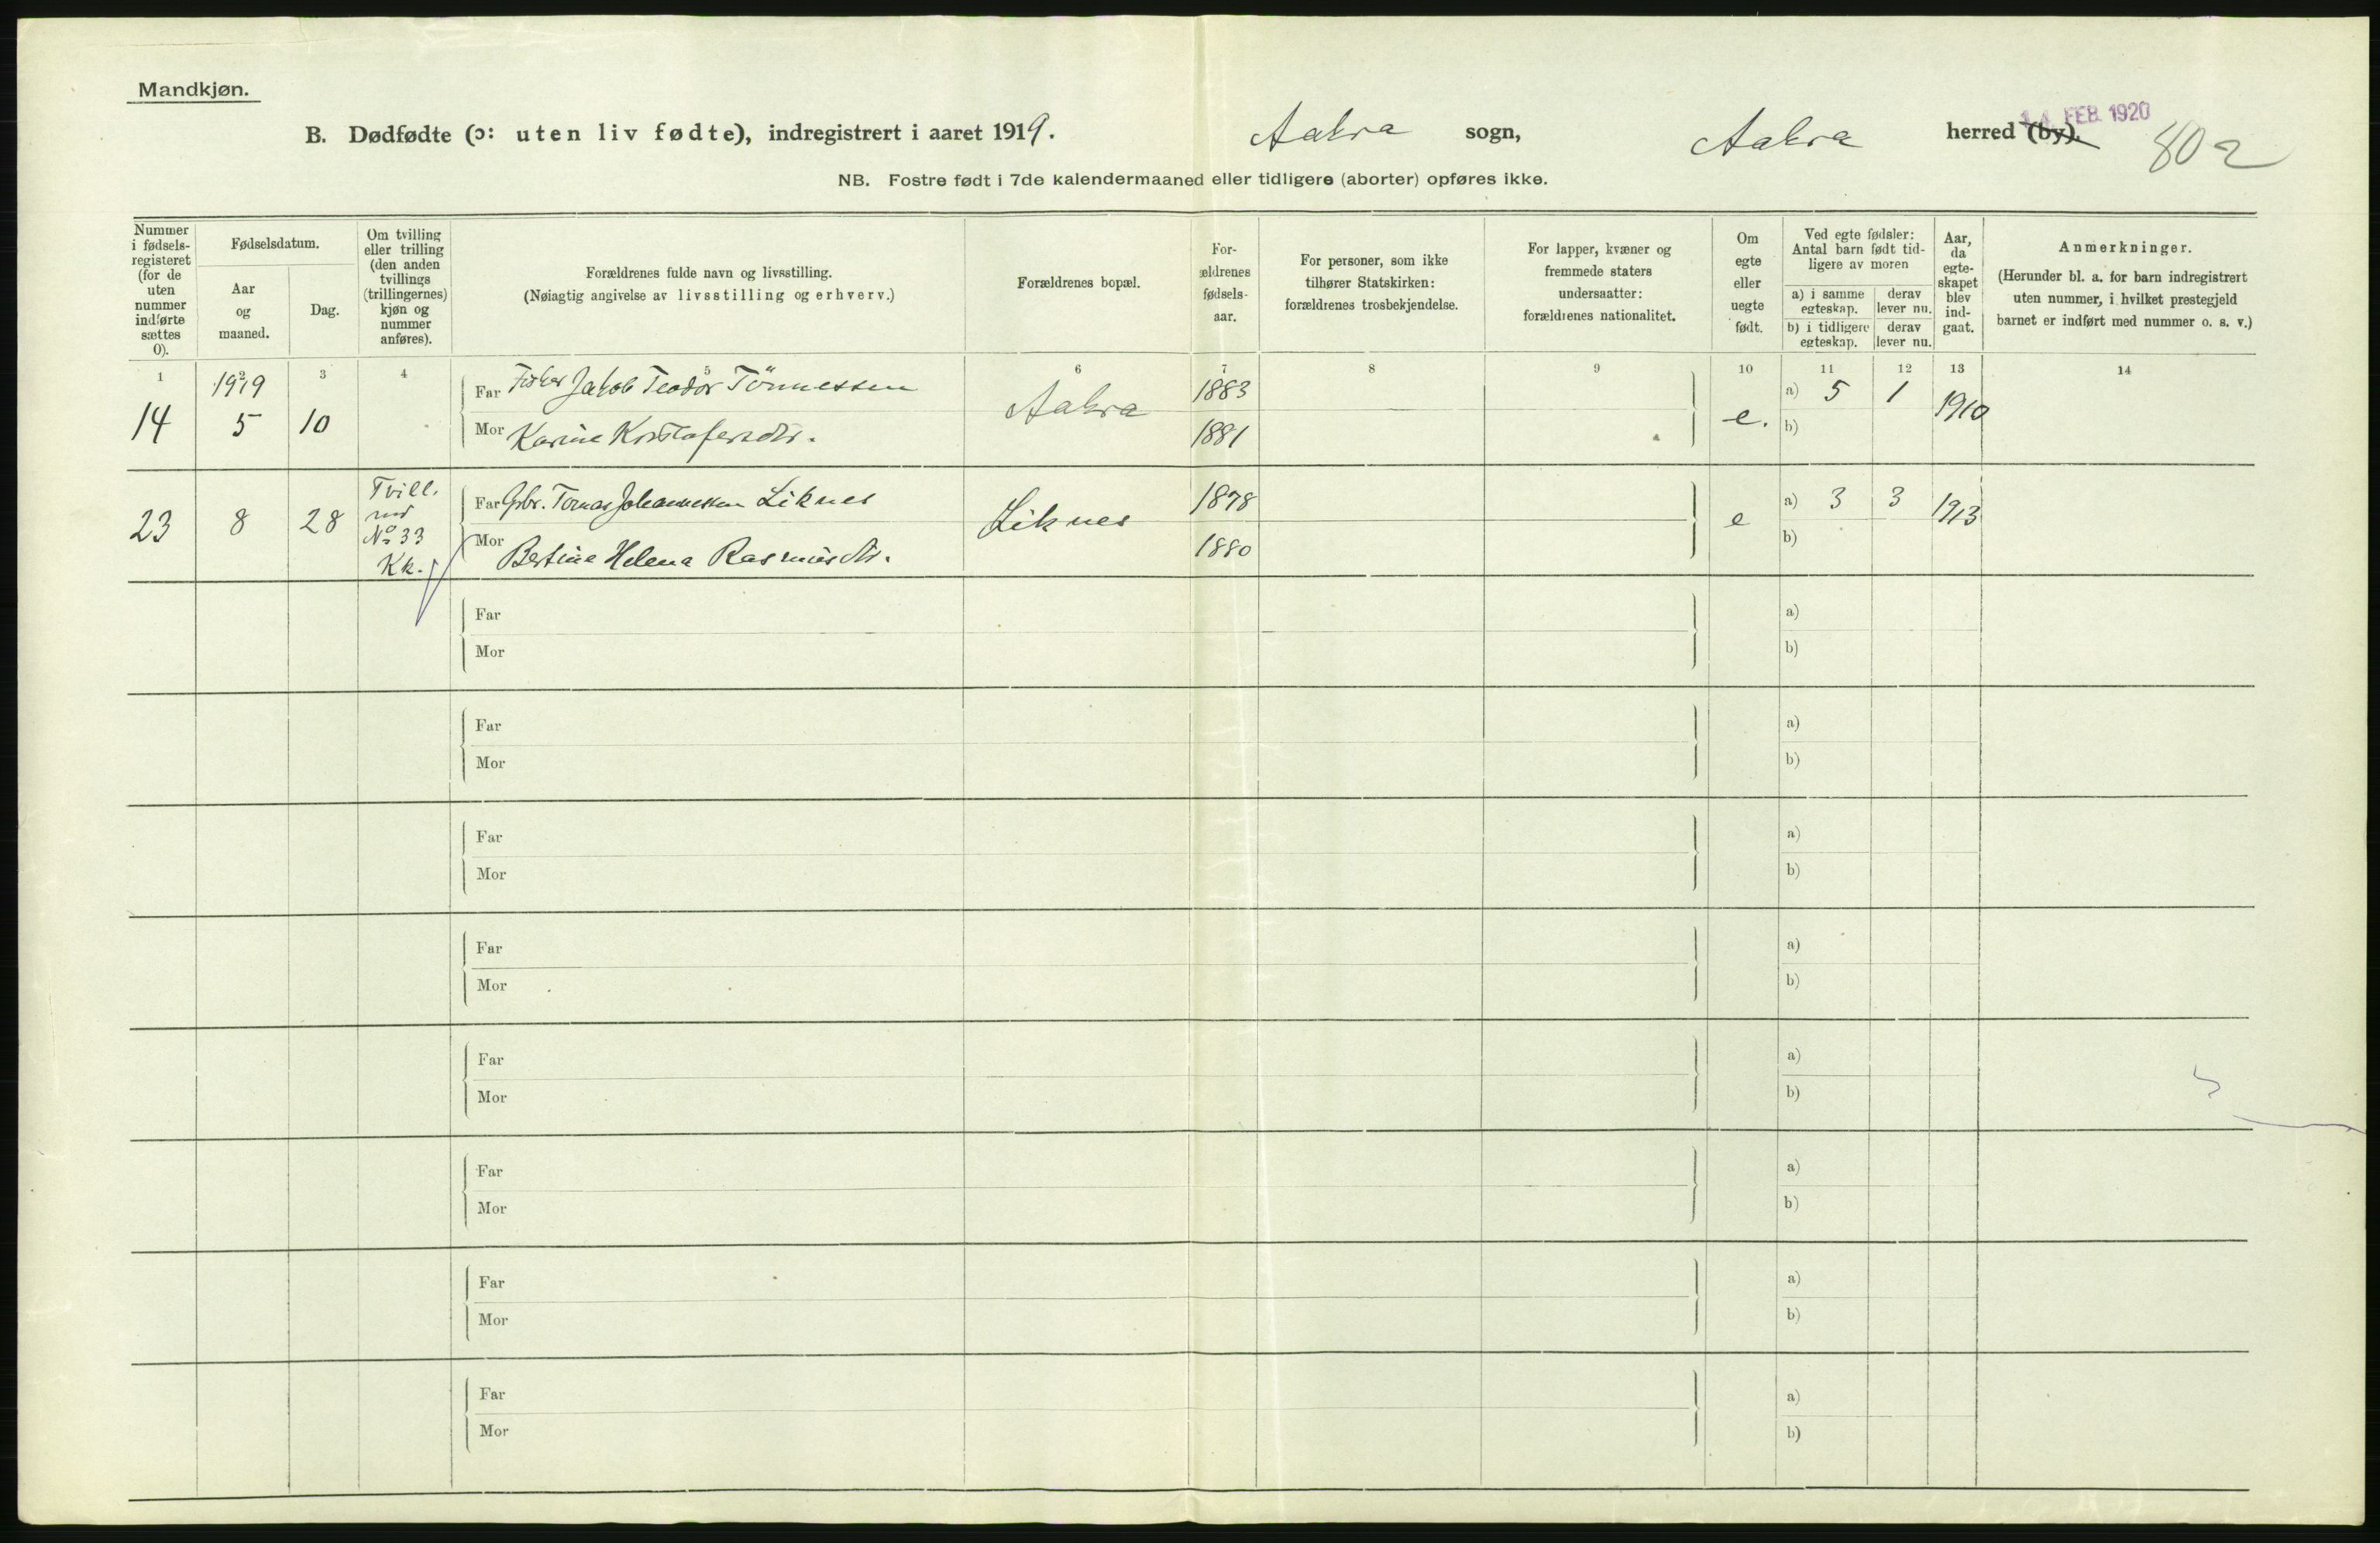 Mandkjøn.
14 FEB. 1920
B. Dødfødte (ɔ: uten liv fødte), indregistrert i aaret 1919. Aakra sogn, Aakra herred (by). 802
NB. Fostre født i 7de kalendermaaned eller tidligere (aborter) opføres ikke.
Nummer
i fødsels-
registeret
(for de
uten
nummer
indførte
sættes
0).
Fødselsdatum.
Aar
og
maaned.
Dag.
Om tvilling
eller trilling
(den anden
tvillings
(trillingernes)
kjøn og
nummer
anføres).
Forældrenes fulde navn og livsstilling.
(Nøiagtig angivelse av livsstilling og erhverv.)
Forældrenes bopæl.
For-
ældrenes
fødsels-
aar.
For personer, som ikke
tilhører Statskirken:
forældrenes trosbekjendelse.
For lapper, kvæner og
fremmede staters
undersaatter:
forældrenes nationalitet.
Om
egte
eller
uegte
født.
Ved egte fødsler:
Antal barn født tid-
ligere av moren
a) i samme
egteskap.
derav
lever nu.
b) i tidligere
egteskap.
derav
lever nu.
Aar,
da
egte-
skapet
blev
ind-
gaat.
Anmerkninger.
(Herunder bl. a. for barn indregistrert
uten nummer, i hvilket prestegjeld
barnet er indført med nummer o. s. v.)
1 2 3 4 5 6 7 8 9 10 11 12 13 14
1919
Far Fisker Jakob Teodor Tönnessen 1883 a) 5 1
14 5 10 Aakra e. 1910
Mor Karine Kristofersdtr. 1881 b)
Tvill.
med
No 33
Kk.
Far Grbr. Tomas Johannessen Liknes 1878 a) 3 3
23 8 28 Liknes e 1913
Mor Bertine Helena Rasmusdtr. 1880 b)
Far a)
Mor b)
Far a)
Mor b)
Far a)
Mor b)
Far a)
Mor b)
Far a)
Mor b)
Far a)
Mor b)
Far a)
Mor b)
Far a)
Mor b)